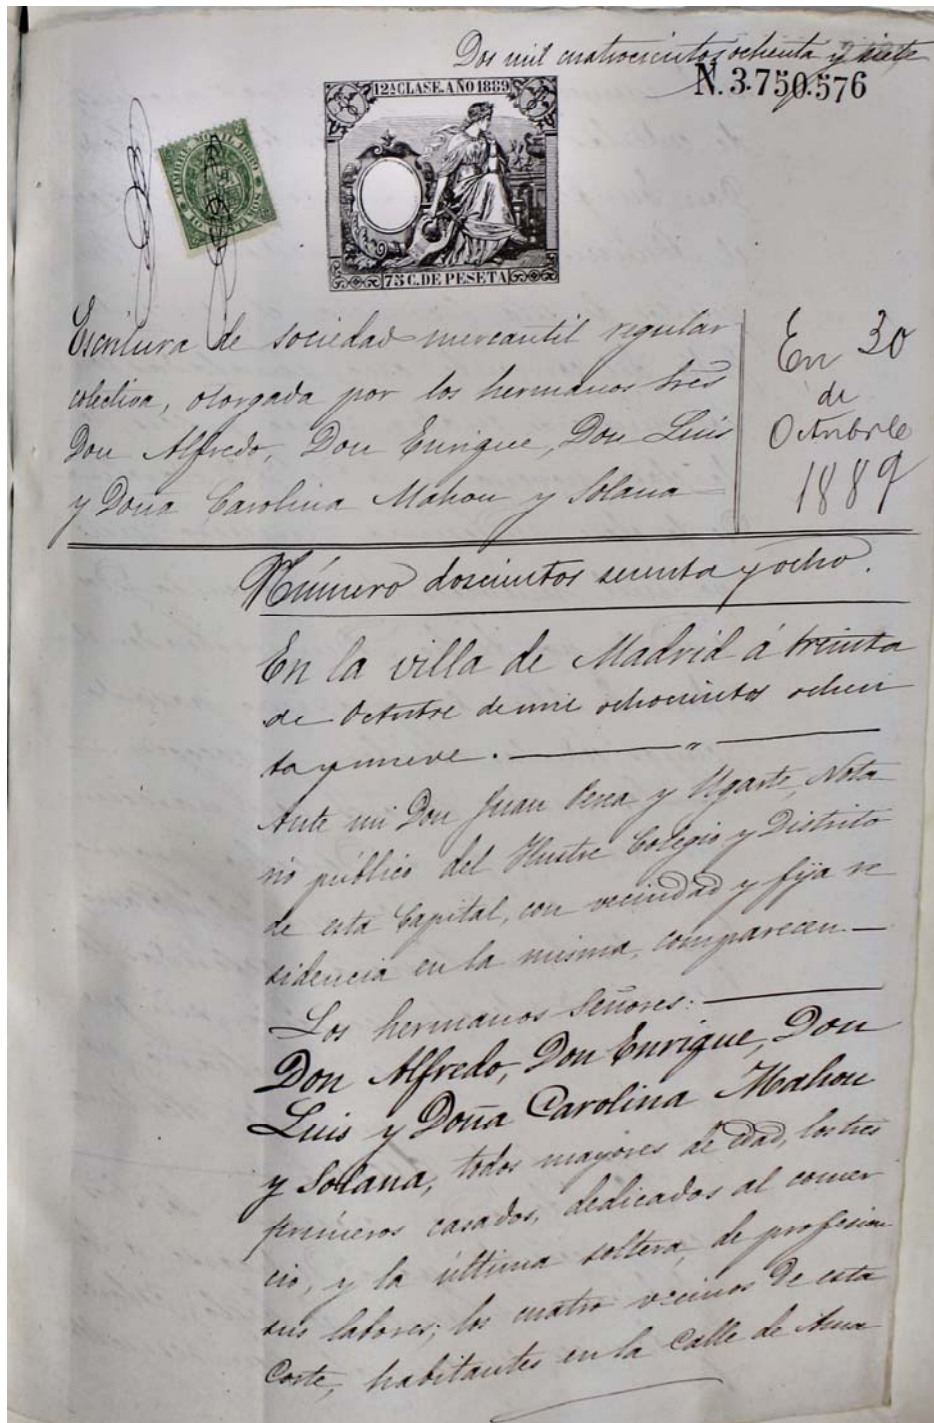 Dos mil cuatrocientos ochenta y siete
N. 3.750.576
12ª CLASE. AÑO 1889
TIMBRE MOVIL 1889
10 CENTIMOS
75 C. DE PESETA
Escritura de sociedad mercantil regular
colectiva, otorgada por los hermanos tres
Don Alfredo, Don Enrique, Don Luis
y Doña Carolina Mahou y Solana
En 30
de
Octubre
1889
Número doscientos sesenta y ocho.
En la villa de Madrid á treinta
de Octubre de mil ochocientos ochen
ta y nueve. — " —
Ante mi Don Juan Perea y Ugarte, Nota
rio público del Ilustre Colegio y Distrito
de esta Capital, con vecindad y fija re
sidencia en la misma, comparecen —
Los hermanos Señores: —
Don Alfredo, Don Enrique, Don
Luis y Doña Carolina Mahou
y Solana, todos mayores de edad, los tres
primeros casados, dedicados al comer
cio, y la última soltera, de profesion
sus labores; los cuatro vecinos de esta
Corte, habitantes en la Calle de Ama